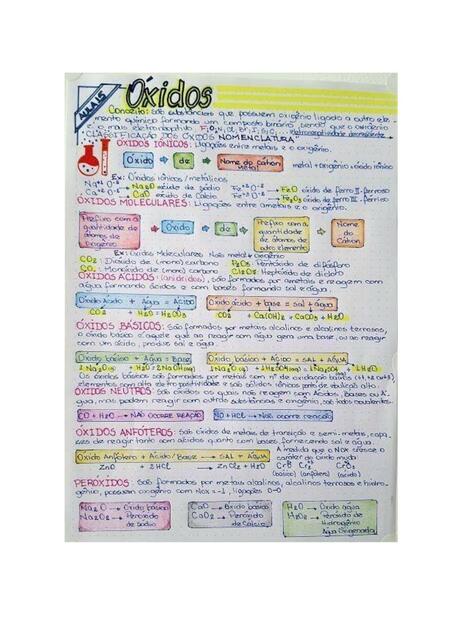 AULA 15
Óxidos
Conceito: são substâncias que possuem oxigênio ligado a outro ele-
mento químico formando um composto binário, sendo que o oxigênio
é o mais eletronegativo
CLASSIFICAÇÃO DOS ÓXIDOS NOMENCLATURA:
ÓXIDOS IÔNICOS: Ligações entre metais e o oxigênio.
Óxido de Nome do cátion metal
Ex: Óxidos iônicos/metálicos
Na+1 O-2 Na2O óxido de sódio Fe+2 O-2 FeO óxido de ferro II - ferroso
Ca+2 O-2 CaO óxido de cálcio Fe+3 O-2 Fe2O3 óxido de ferro III - férrico
ÓXIDOS MOLECULARES: Ligações entre ametais e o oxigênio.
Prefixo com a quantidade de átomos de oxigênio
Óxido
de
Prefixo com a quantidade de átomos de outro elemento
Nome do Cátion
Ex: Óxidos Moleculares
CO2: Dióxido de (mono) carbono P2O5: Pentóxido de difósforo
CO: Monóxido de (mono) carbono Cl2O7: Heptóxido de dicloro
ÓXIDOS ÁCIDOS: (anidridos), são formados por ametais e reagem com
água formando ácidos e com bases formando sal e água.
Óxido Ácido + Água = Ácido Óxido ácido + base = sal + água
CO2 + H2O → H2CO3 CO2 + Ca(OH)2 → CaCO3 + H2O
ÓXIDOS BÁSICOS: São formados por metais alcalinos e alcalinos terrosos,
o óxido básico é aquele que ao reagir com água gera uma base, ou ao reagir
com um ácido, produz sal e água.
Óxido básico + Água = Base Óxido básico + Ácido = SAL + ÁGUA
Os óxidos básicos são formados por metais
elementos com alta eletropositividade e são sólidos iônicos
ÓXIDOS NEUTROS: São óxidos os quais não reagem com Ácidos, Bases ou Á-
gua, mas podem reagir com outras substâncias
CO + H2O → NÃO OCORRE REAÇÃO NO + HCl → NÃO ocorre reação
ÓXIDOS ANFÓTEROS: São óxidos de metais de transição e semi-metais, capa-
zes de reagir tanto com ácidos quanto com bases, fornecendo sal e água.
Óxido Anfótero + Ácido/Base → SAL + ÁGUA
ZnO + 2HCl → ZnCl2 + H2O
À medida que o NOX cresce o
caráter do óxido muda
CrO Cr2O3 CrO3
básico (anfótero) (ácido)
PERÓXIDOS: São formados por metais alcalinos, alcalinos terrosos e hidro-
gênio, possuem oxigênio com Nox -1, ligações O-O
Na2O → Óxido básico
Na2O2 → Peróxido de Sódio
CaO → Óxido básico
CaO2 → Peróxido de Cálcio
H2O → Óxido água
H2O2 → Peróxido de Hidrogênio
Água Oxigenada